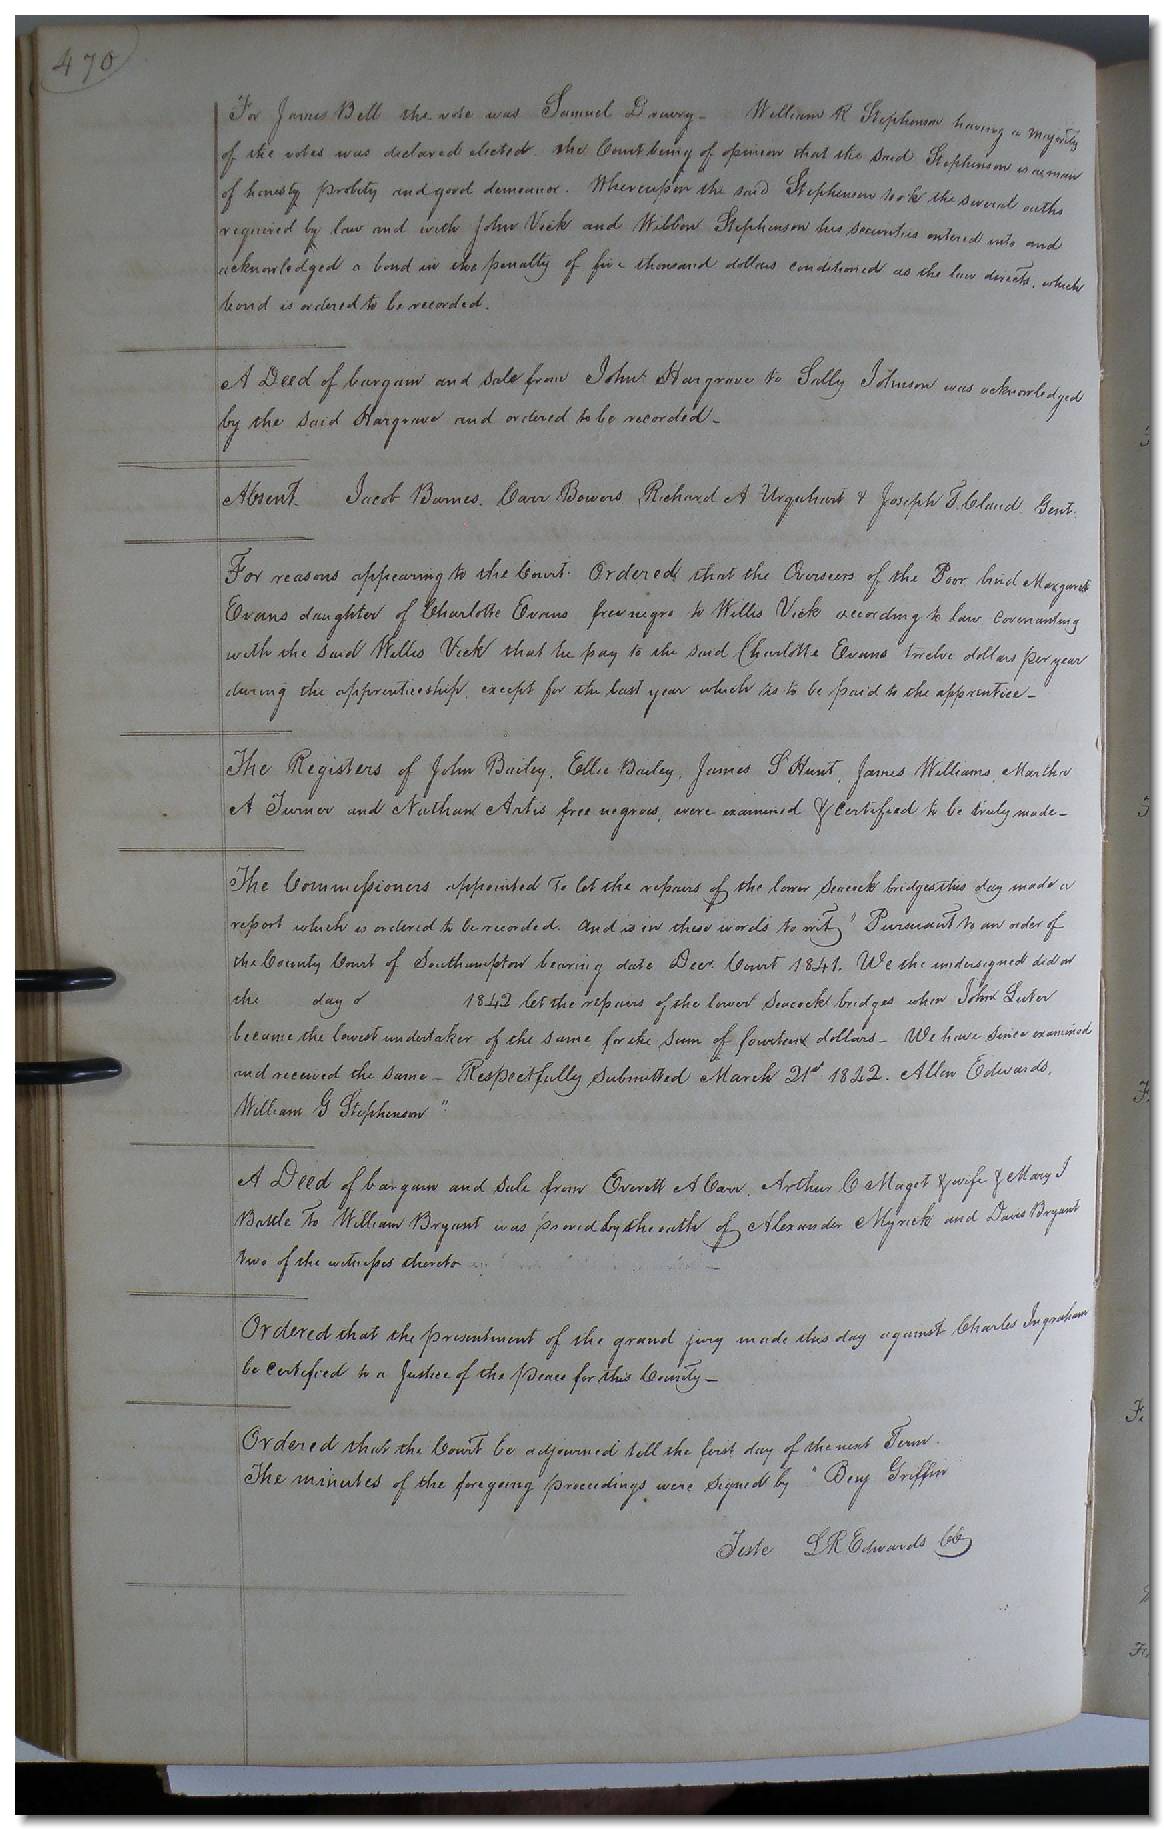 470
For James Bell the vote was Samuel Drewry _ William R Stephenson having a majority
of the votes was declared elected. the Court being of opinion that the said Stephenson is a man
of honesty probity and good demeanor. Whereupon the said Stephenson took the several oaths
required by law and with John Vick and Stephenson his securities entered into and
acknowledged a bond in the penalty of five thousand dollars conditioned as the law directs. which
bond is ordered to be recorded.
A Deed of bargain and sale from John Hargrave to Sally Johnson was acknowledged
by the said Hargrave and ordered to be recorded _
Absent _ Jacob Barnes. Carr Bowers Richard A Urquhart & Joseph T. Claud. Gent.
For reasons appearing to the Court. Ordered that the Overseers of the Poor bind Margaret
Evans daughter of Charlotte Evans free negro to Willis Vick according to law covenanting
with the said Willis Vick that he pay to the said Charlotte Evans twelve dollars per year
during the apprenticeship, except for the last year which is to be paid to the apprentice _
The Registers of John Bailey, Ellie Bailey, James S Hunt, James Williams, Martha
A Turner and Nathan Artis free negroes, were examined & certified to be truly made _
The Commissioners appointed to let the repairs of the lower Seacock bridges this day made a
report which is ordered to be recorded. and is in these words to wit, " Pursuant to an order of
the County Court of Southampton bearing date Decr. Court 1841. We the undersigned did on
the day of 1842 let the repairs of the lower Seacock bridges when John Luter
became the lowest undertaker of the same for the sum of fourteen dollars _ We have since examined
and received the same _ Respectfully submitted March 21st 1842. Allen Edwards,
William G Stephenson "
A Deed of bargain and sale from Everett A Carr, Arthur C Maget & wife & Mary J
Battle to William Bryant was proved by the oath of Alexander Myrick and Davis Bryant
two of the witnesses thereto
Ordered that the presentment of the grand jury made this day against Charles Ingraham
be certified to a Justice of the peace for this County _
Ordered that the Court be adjourned till the first day of the next Term.
The minutes of the foregoing proceedings were signed by " Benj Griffin
Teste L R Edwards